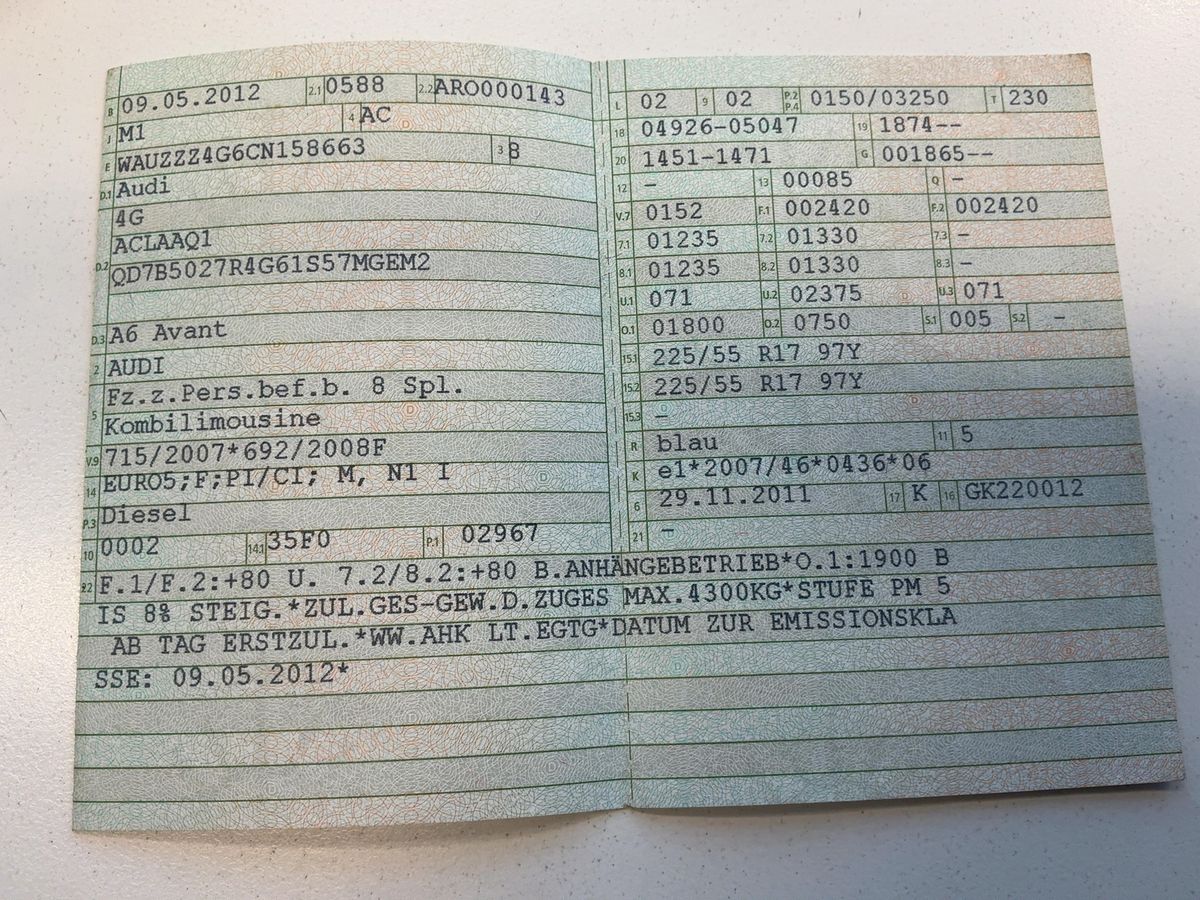 B 09.05.2012 2.1 0588 2.2 ARO000143
J M1 4 AC
E WAUZZZ4G6CN158663 3 B
D.1 Audi
4G
ACLAAQ1
D.2 QD7B5027R4G61S57MGEM2
D.3 A6 Avant
2 AUDI
Fz.z.Pers.bef.b. 8 Spl.
5 Kombilimousine
V.9 715/2007*692/2008F
14 EURO5;F;PI/CI; M, N1 I
P.3 Diesel
10 0002 14.1 35F0 P.1 02967
L 02 9 02 P.2 P.4 0150/03250 T 230
18 04926-05047 19 1874--
20 1451-1471 G 001865--
12 - 13 00085 Q -
V.7 0152 F.1 002420 F.2 002420
7.1 01235 7.2 01330 7.3 -
8.1 01235 8.2 01330 8.3 -
U.1 071 U.2 02375 U.3 071
O.1 01800 O.2 0750 S.1 005 S.2 -
15.1 225/55 R17 97Y
15.2 225/55 R17 97Y
15.3 -
R blau 11 5
K e1*2007/46*0436*06
6 29.11.2011 17 K 16 GK220012
21 -
22 F.1/F.2:+80 U. 7.2/8.2:+80 B.ANHÄNGEBETRIEB*O.1:1900 B
IS 8% STEIG.*ZUL.GES-GEW.D.ZUGES MAX.4300KG*STUFE PM 5
AB TAG ERSTZUL.*WW.AHK LT.EGTG*DATUM ZUR EMISSIONSKLA
SSE: 09.05.2012*